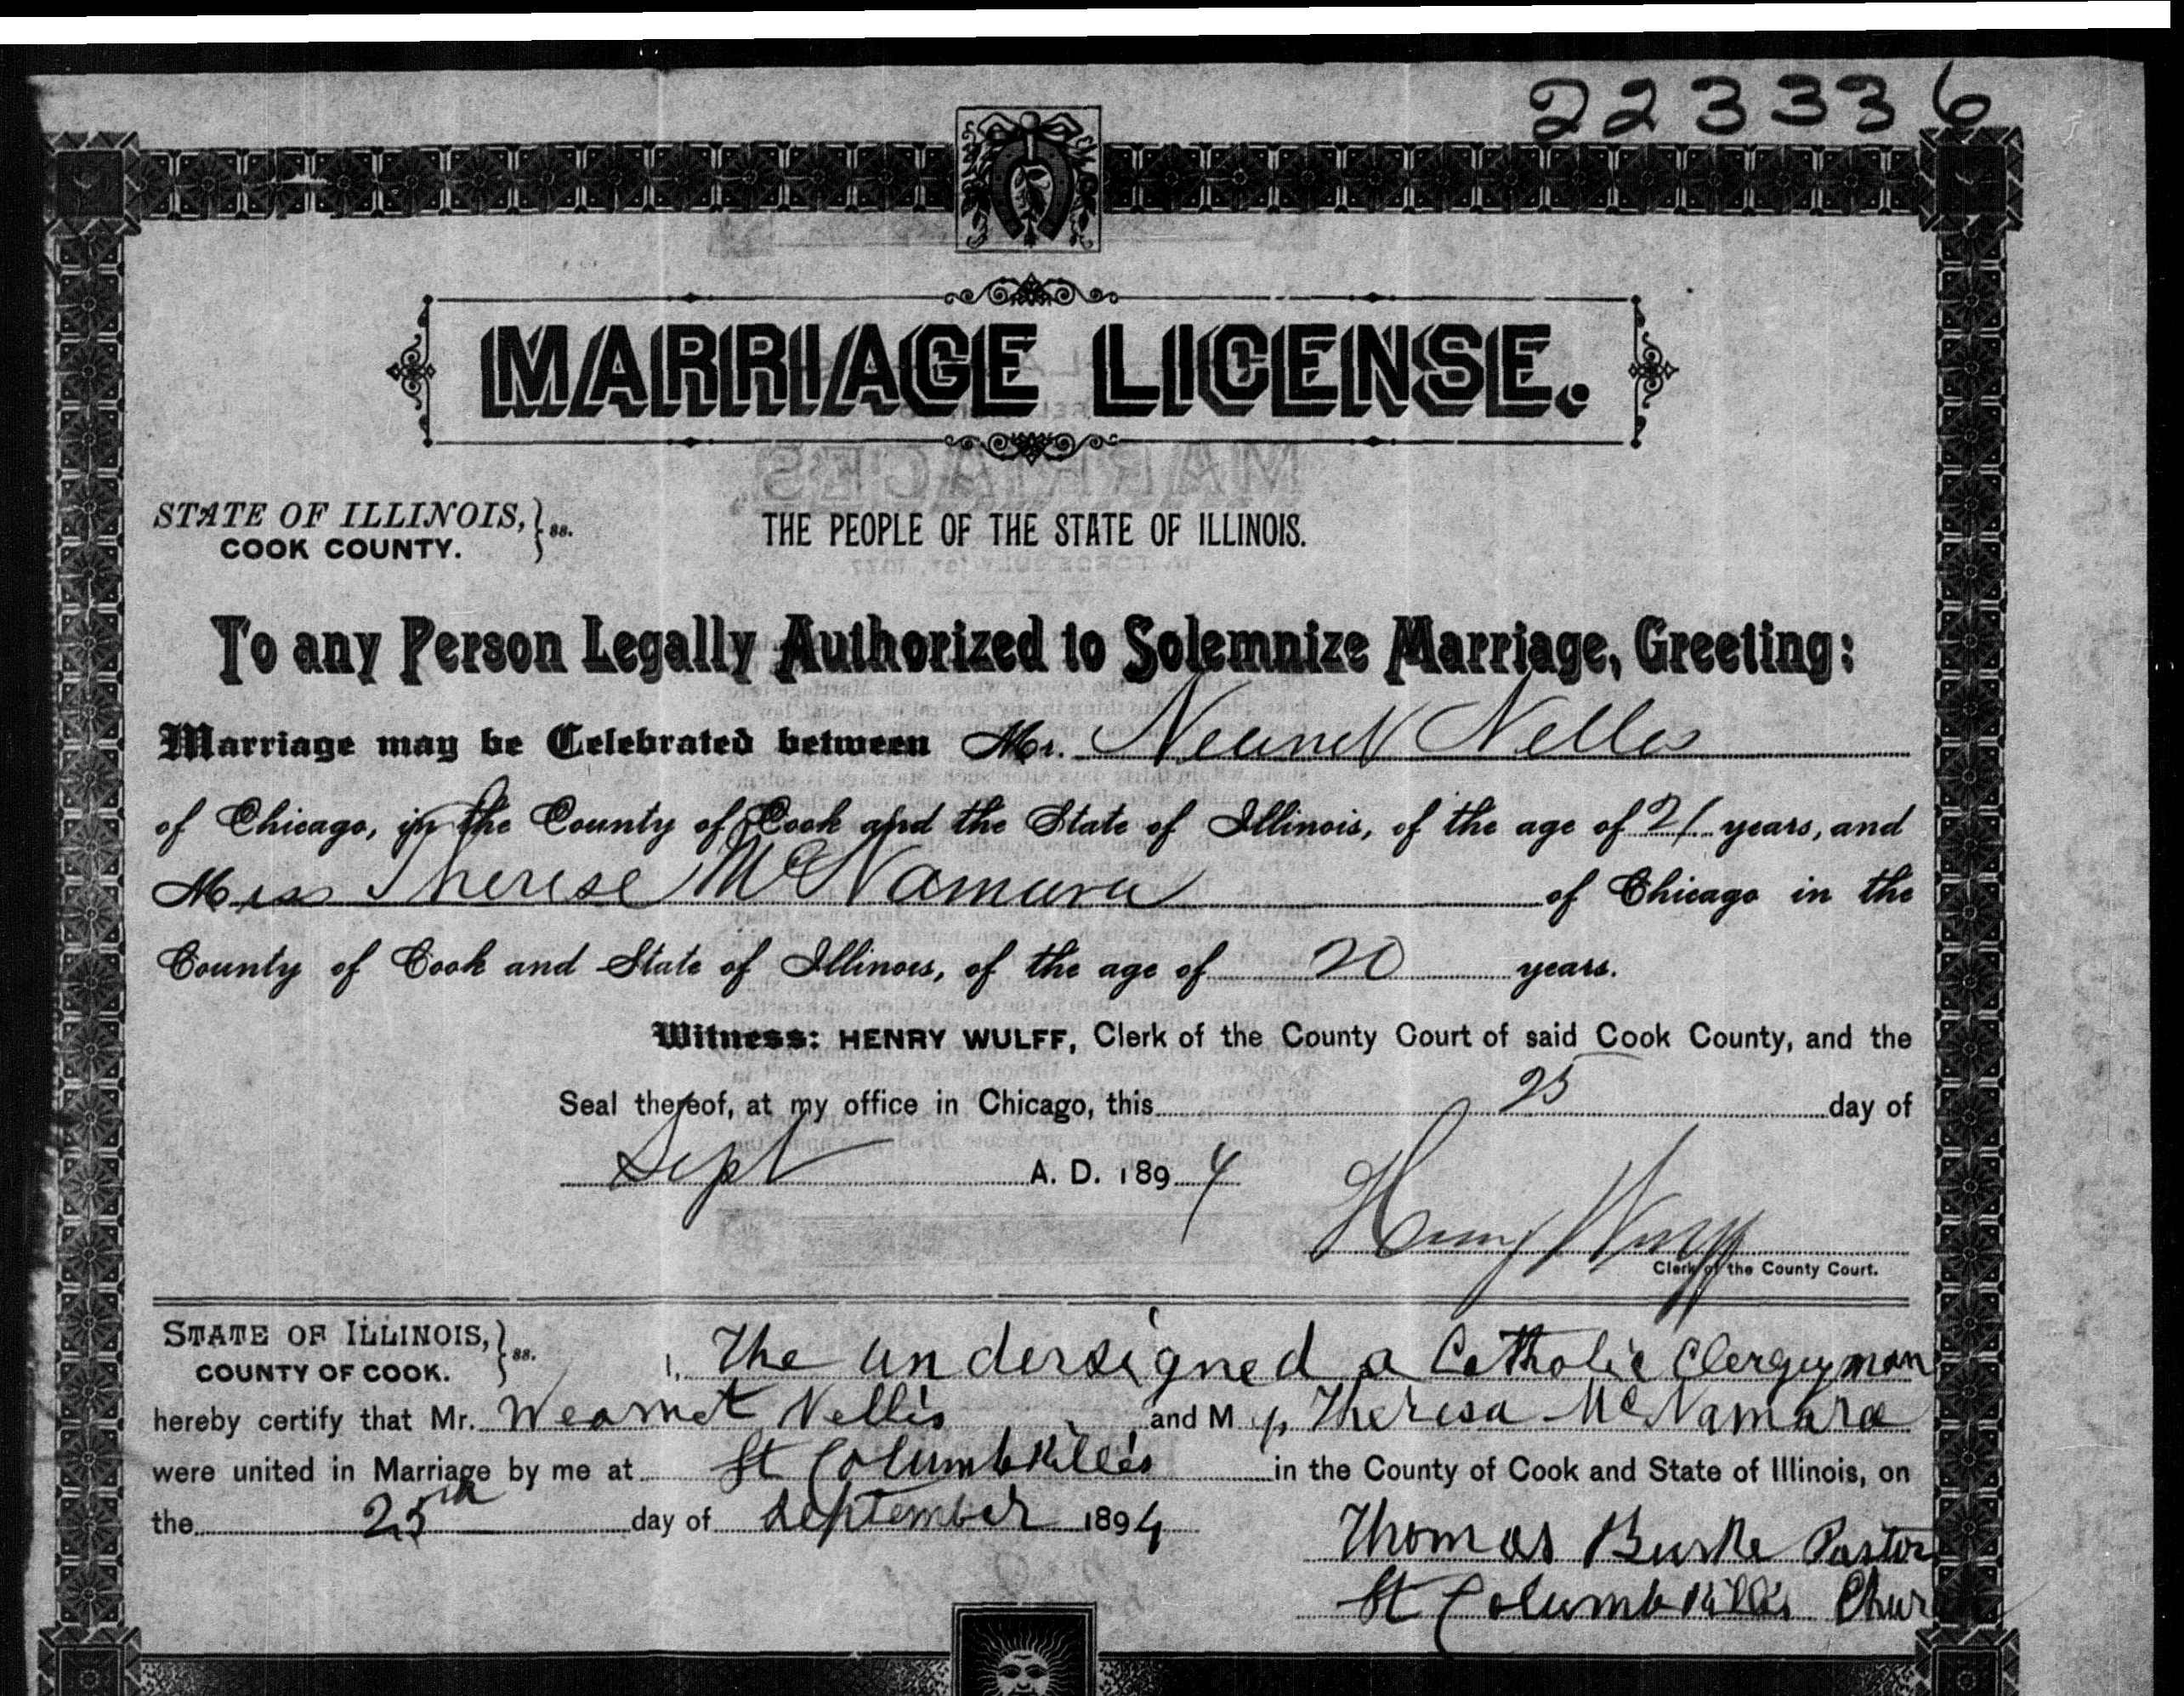 223336
MARRIAGE LICENSE.
STATE OF ILLINOIS, } ss.
COOK COUNTY.
THE PEOPLE OF THE STATE OF ILLINOIS.
To any Person Legally Authorized to Solemnize Marriage, Greeting:
Marriage may be Celebrated between Mr. Nellis
of Chicago, in the County of Cook and the State of Illinois, of the age of 21 years, and
Miss Therese McNamara of Chicago in the
County of Cook and State of Illinois, of the age of 20 years.
Witness: HENRY WULFF, Clerk of the County Court of said Cook County, and the
Seal thereof, at my office in Chicago, this 25 day of
Sept A. D. 1894
Henry Wulff
Clerk of the County Court.
STATE OF ILLINOIS, } ss.
COUNTY OF COOK.
I, The undersigned a Catholic Clergyman
hereby certify that Mr. Nellis and M Theresa McNamara
were united in Marriage by me at St Columbkille's in the County of Cook and State of Illinois, on
the 25th day of September 1894
Thomas Burke Pastor
St Columbkille's Chur